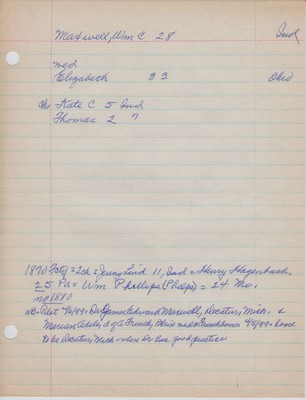 Maxwell, Wm C 28 Ind
med
Elizabeth 33 Ohio
ch Kate C 5 Ind
Thomas 2 "
1870 Fcty = 2ch = Jenny Lind 11, Ind = Henry Hagenbush,
25 Pa = Wm Phillips (Phelps) = 24 Mo.
no 1880
Dr James Edward Maxwell, Decatur, Mich. &
Marian Adele, d of A French, 4/5/99 = home
to be Decatur, Mich where Dr has good practice